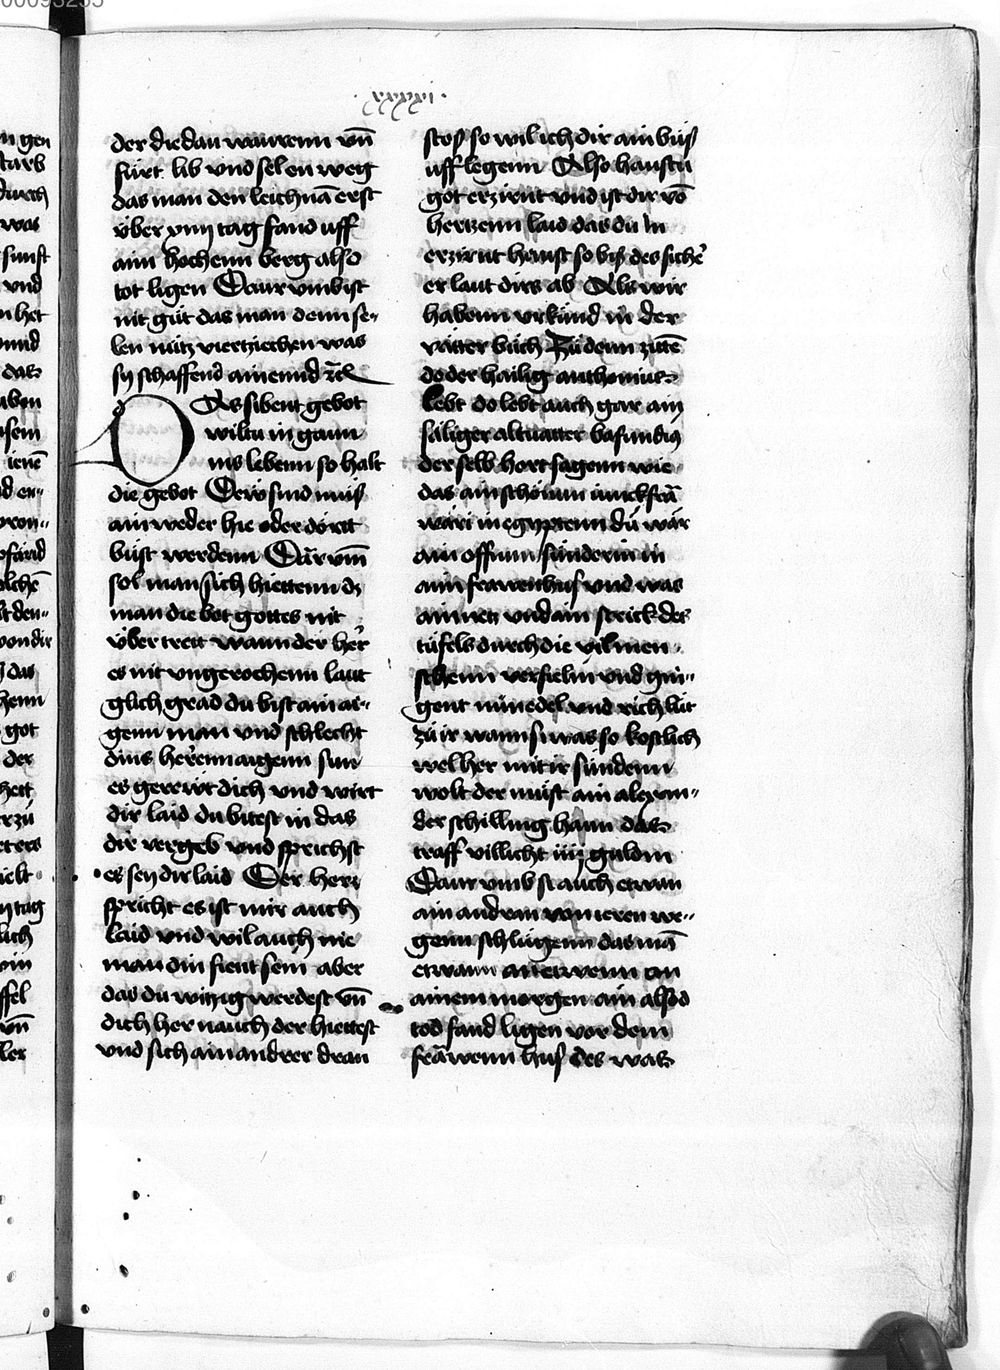 xxxxxi
der die dau waurenn vn̄
fürt lib vnd sel en weg
das man den leichnā erst
über xiiij tag fand uff
ainn hochenn berg also
tot ligen Daur vmb ist
nit gůt das man denn se-
len nütz viertziechen was
sy schaffend ainemnd
Das sibent gebot
wiltu in gaun
ins lebenn so halt
die gebot Dew sind můß
ain weder hie oder dörtt
bůst werdenn Dar vm̄
sol man sich hiettenn dz
man die bot gottes nit
über trett wann der her
es nit vngerochenn laut
glich grad du bist ain ai-
genn man vnd schlecht
dins herrenn aigenn sun
es gerewt dich vnd wirt
dir laid du bitest in das
dir vergeb vnd sprichst
es sey dir laid Der herr
spricht es ist mir auch
laid vnd wil auch nie
man din fient sein aber
das du witzig werdest vn̄
dich her nauch der hiettest
vnd sich ain andrer dran
stoß so wil ich dir ain bůß
uff legenn Also haustu
got erzirnt vnd ist dir vō
hertzenn laid das du in
erzirnt haust so biß des sicher
er laut dirs ab Als wir
habenn vrkünd in der
vätter bůch Zů denn zittē
do der hailig anthonius
lebt do lebt auch gar ain
säliger altuatter
der selb hort sagenn wie
das ain schöinn iunckfrā
wäri in egyptenn dü wär
ain offnun sünderin in
ainn frawenhuß vnd was
ain nett vnd ain strick des
tüfels durch die vil men-
schenn verfielin vnd gin-
gent nun edel vnd rich lüt
zů ir wann si was so kostlich
welher mit ir sündenn
wolt der můst ain alexan-
der schilling hann das
traff villicht iiij guldin
Daur vmb si auch etwan
ain andran von ieren we-
genn schlůgenn das mā
etwann an etwenn an
ainem morgen ain also
tod fand ligen vor dem
frāwenn huß des was